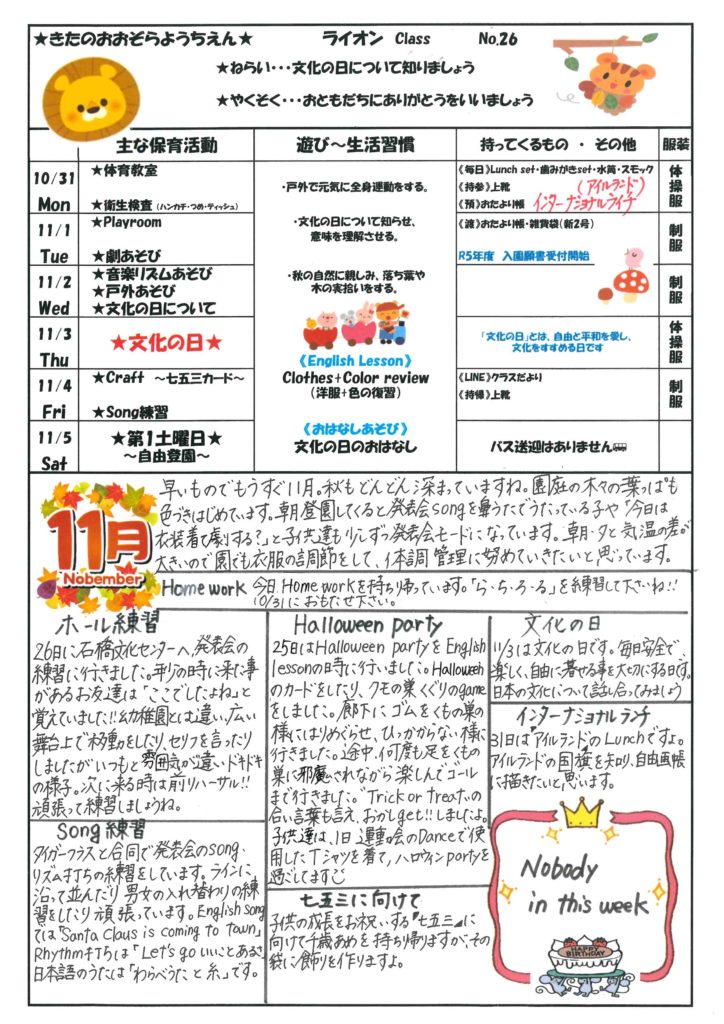 ★きたのおおぞらようちえん★ ライオン Class No.26
★ねらい・・・文化の日について知りましょう
★やくそく・・・おともだちにありがとうをいいましょう
主な保育活動 遊び～生活習慣 持ってくるもの ・ その他 服装
10/31 Mon
★体育教室
★衛生検査（ハンカチ・つめ・ティッシュ）
《毎日》Lunch set・歯みがきset・水筒・スモック
《持参》上靴 （アイルランド）
《預》おたより帳 インターナショナルライチ
体操服
11/1 Tue
★Playroom
★劇あそび
《渡》おたより帳・雑貨袋（新2号）
R5年度 入園願書受付開始
制服
11/2 Wed
★音楽リズムあそび
★戸外あそび
★文化の日について
制服
11/3 Thu
★文化の日★
「文化の日」とは、自由と平和を愛し、
文化をすすめる日です
体操服
11/4 Fri
★Craft ～七五三カード～
★Song練習
《LINE》クラスだより
《持帰》上靴
制服
11/5 Sat
★第1土曜日★
～自由登園～
バス送迎はありません
・戸外で元気に全身運動をする。
・文化の日について知らせ、
意味を理解させる。
・秋の自然に親しみ、落ち葉や
木の実拾いをする。
《English Lesson》
Clothes+Color review
（洋服+色の復習）
《おはなしあそび》
文化の日のおはなし
11月
Nobember
早いものでもうすぐ11月。秋もどんどん深まっていますね。園庭の木々の葉っぱも
色づきはじめています。朝登園してくると発表会songを歌うたっている子や「今日は
衣装着て劇する?」と子供達も少しずつ発表会モードになっています。朝・夕と気温の差が
大きいので園でも衣服の調節をして、体調管理に努めていきたいと思っています。
Home work 今日Home workを持ち帰っています。「ら・ち・ろ・る」を練習して下さいね!!
10/31におもたせ下さい。
ホール練習
26日に石橋文化センターへ、発表会の
練習に行きました。年少の時に来た事
があるお友達は「ここでしたよね」と
覚えていました!!幼稚園とは違い、広い
舞台上で移動をしたり、セリフを言ったり
しましたがいつもと雰囲気が違いドキドキ
の様子。次に来る時は前リハーサル!!
頑張って練習しましょうね。
Song練習
タイガークラスと合同で発表会のsong・
リズム打ちの練習をしています。ラインに
沿って並んだり男女の入れ替わりの練
習をしたり頑張っています。English song
では「Santa Claus is coming to town」
Rhythm打ちは「Let's go いいことあるさ」
日本語のうたは「わらべうた と 糸」です。
Halloween party
25日はHalloween partyをEnglish
lessonの時に行いました。Halloween
のカードをしたり、クモの巣くぐりのgame
をしました。廊下にゴムをくもの巣の
様にはりめぐらせ、ひっかからない様に
行きました。途中、何度も足をくもの
巣に邪魔されながら楽しんでゴール
まで行きました。"Trick or treat"の
合い言葉も言え、おかしget!!しましたよ。
子供達は、1日運動会のDanceで使
用したTシャツを着て、ハロウィンpartyを
過ごしてます
七五三に向けて
子供の成長をお祝いする『七五三』に
向けて千歳あめを持ち帰りますが、その
袋に飾りを作りますよ。
文化の日
11/3は文化の日です。毎日安全で、
楽しく、自由に暮せる事を大切にする日です。
日本の文化について話し合ってみましょう
インターナショナルランチ
31日は「アイルランド」のLunchですよ。
アイルランドの国旗を知り、自由画帳
に描きたいと思います。
Nobody
in this week
HAPPY
BIRTHDAY